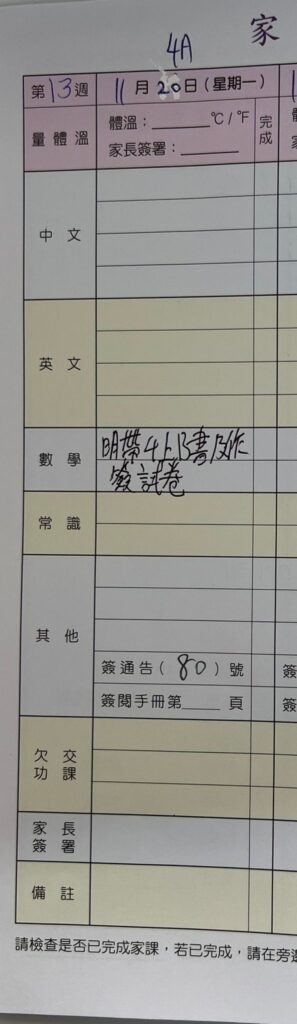 4A 家
第13週 11月20日(星期一)
量體溫 體溫:______℃/℉ 完成
家長簽署:______
中文
英文
數學 明帶4上B書及作
簽試卷
常識
其他
簽通告(80)號 簽
簽閱手冊第____頁 簽
欠交
功課
家長
簽署
備註
請檢查是否已完成家課,若已完成,請在旁